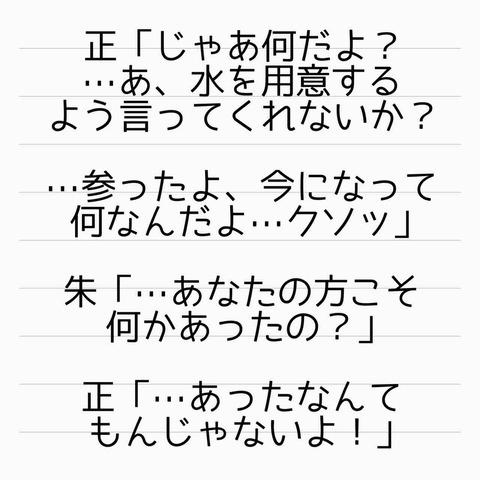 正「じゃあ何だよ？
…あ、水を用意する
よう言ってくれないか？
…参ったよ、今になって
何なんだよ…クソッ」
朱「…あなたの方こそ
何かあったの？」
正「…あったなんて
もんじゃないよ！」